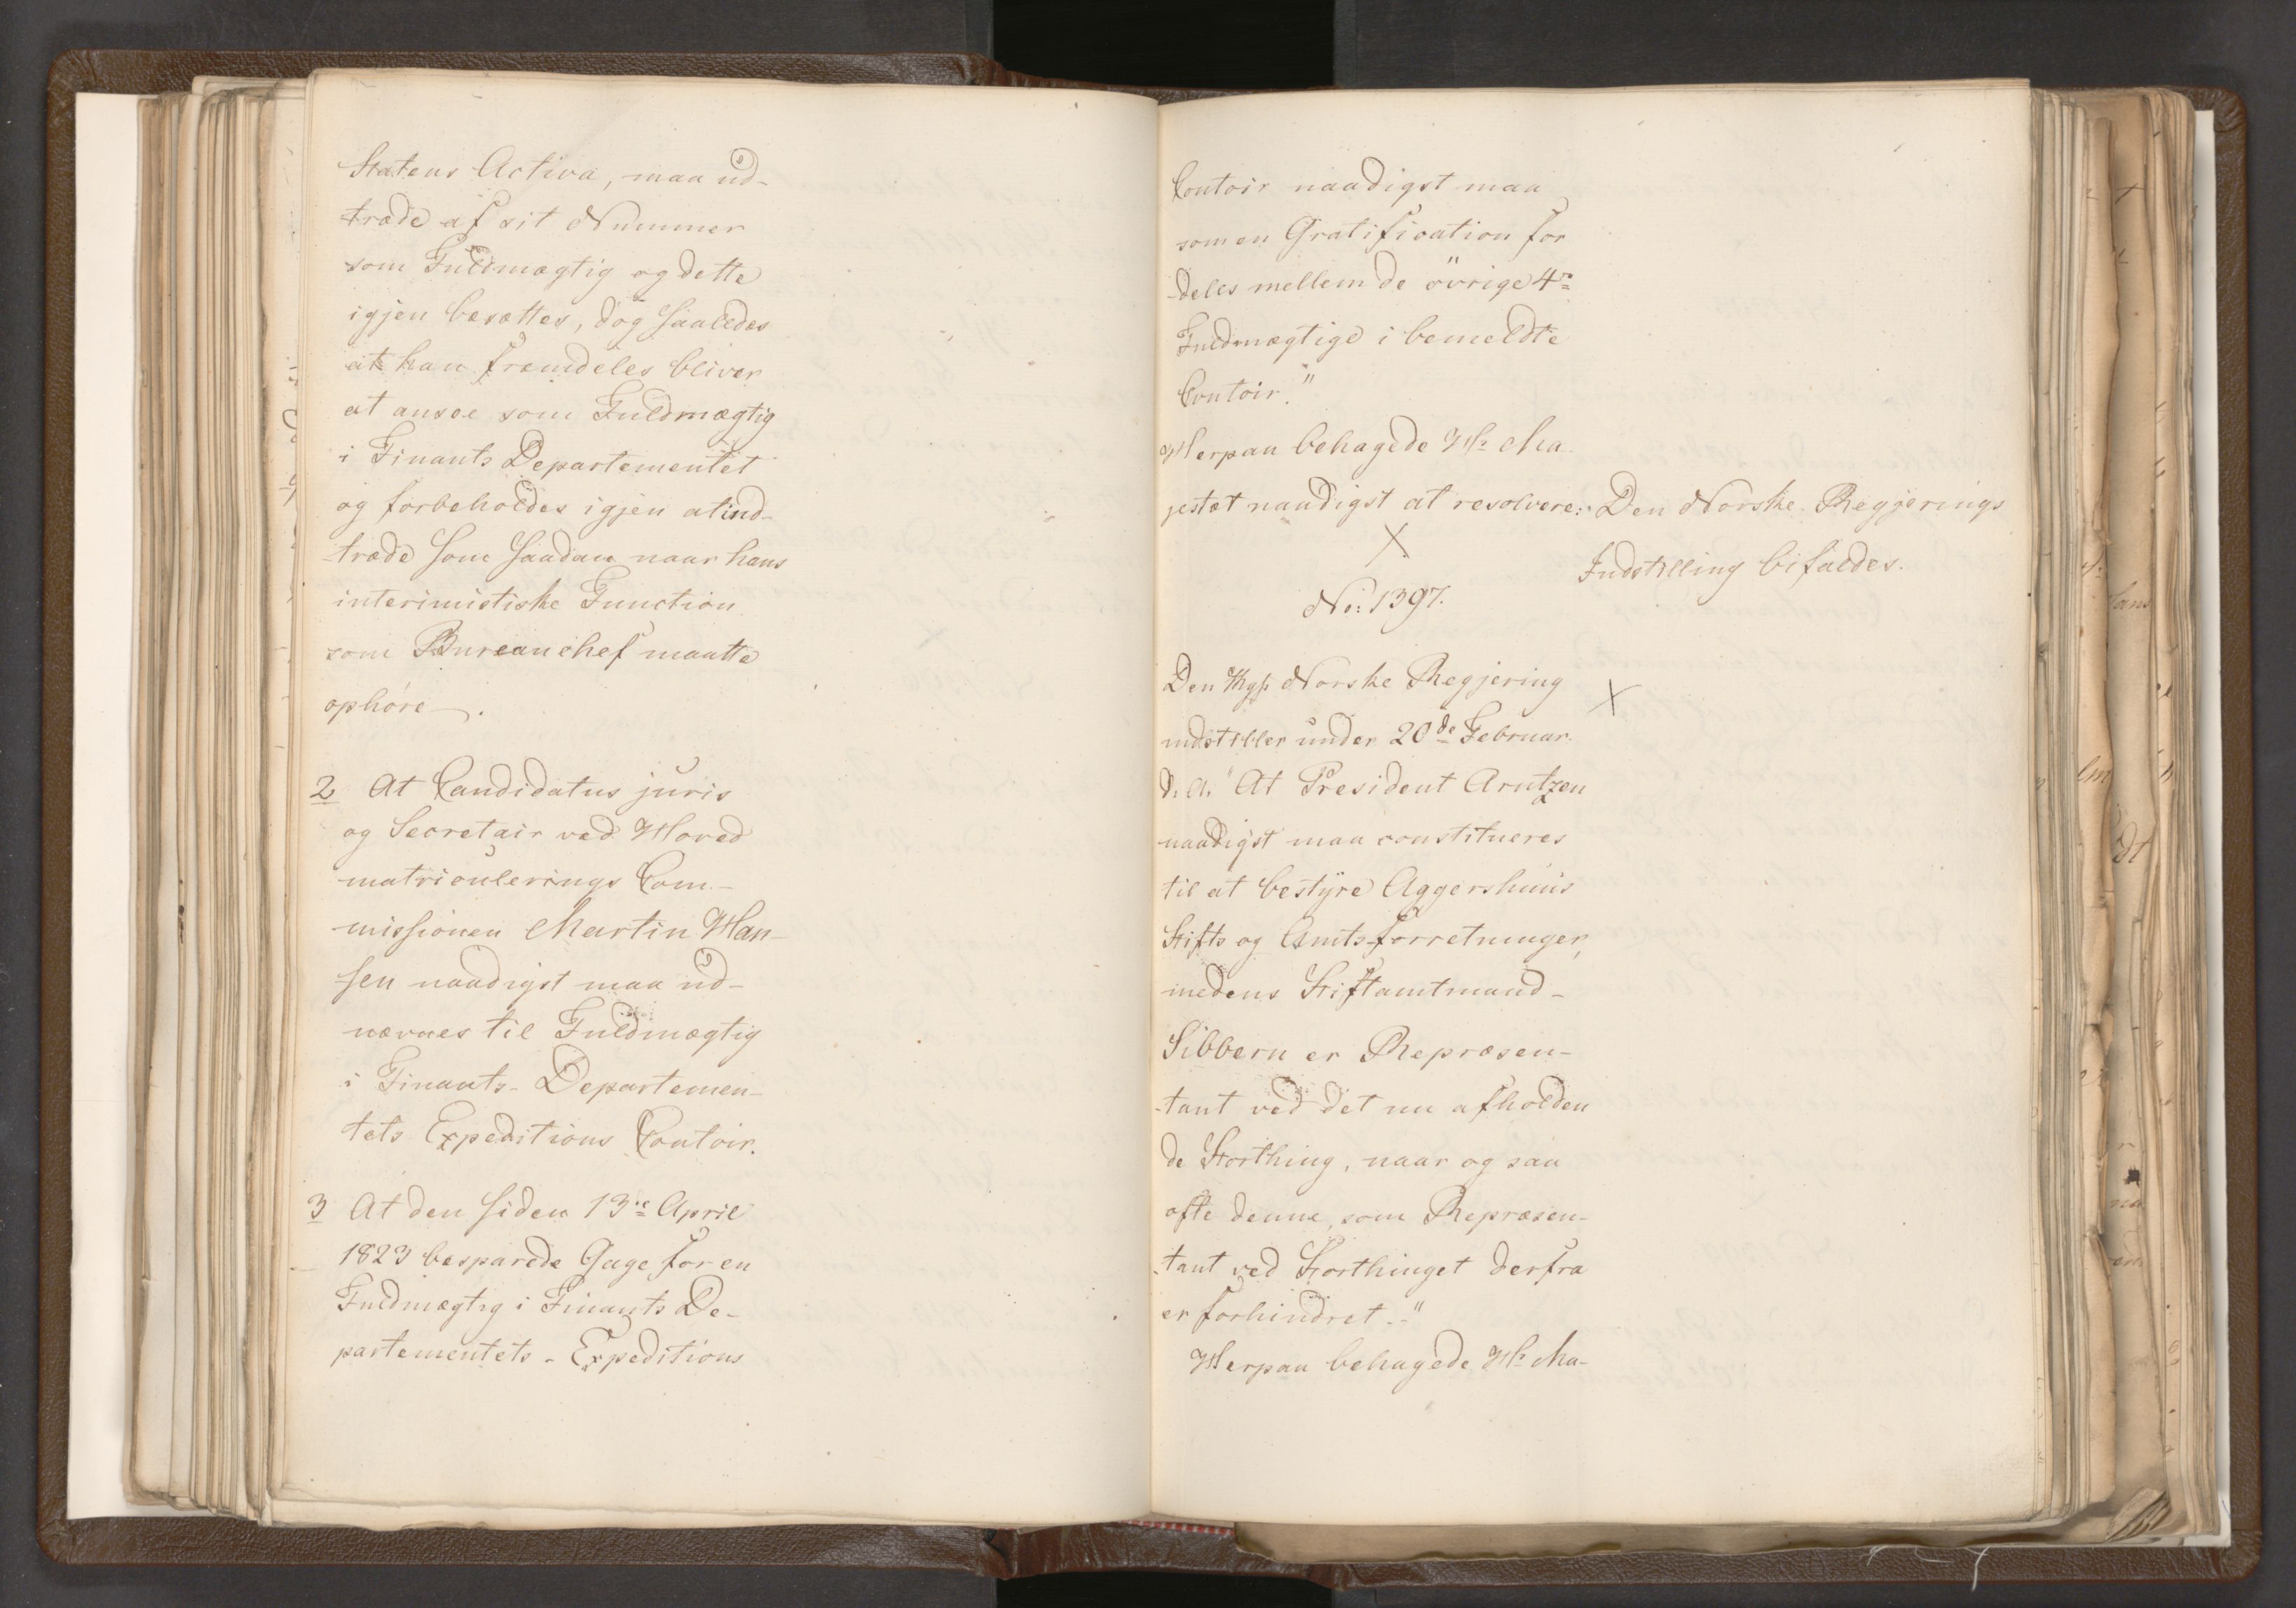 Statens Activa, maa ud-
træde af sit Nummer
som Fuldmægtig og dette
igjen besættes, dog saaledes
at han fremdeles bliver
at ansee som Fuldmægtig
i Finants Departementet
og forbeholdes igjen at ind-
træde som saadan naar hans
interimistiske Function
som Bureauchef maatte
ophöre.
2 At Candidatus juris
og Secretair ved Hoved
matriculerings Com-
missionen Martin Han-
sen naadigst maa ud-
nævnes til Fuldmægtig
i Finants-Departemen-
tets Expeditions Contoir.
3 At den siden 13de April
1823 besparede Gage for en
Fuldmægtig i Finants De-
partementets-Expeditions
Contoir naadigst maa
som en Gratification for
deles mellem de övrige 4re
Fuldmægtige i bemeldte
Contoir."
Herpaa behagede Hs Ma
jestæt naadigst at resolvere: Den Norske Regjerings
Indstilling bifaldes.
X
No: 1397.
Den Kgl. Norske Regjering X
indstiller under 20de Februar
d. A. "At President Arntzen
naadigst maa constitueres
til at bestyre Aggershuus
Stifts og Amts-forretninger,
medens Stiftamtmand-
Sibbern er Repræsen-
tant ved det nu afholden
de Storthing, naar og saa
ofte denne, som Repræsen-
tant ved Storthinget derfra
er forhindret."
Herpaa behagede Hs Ma-